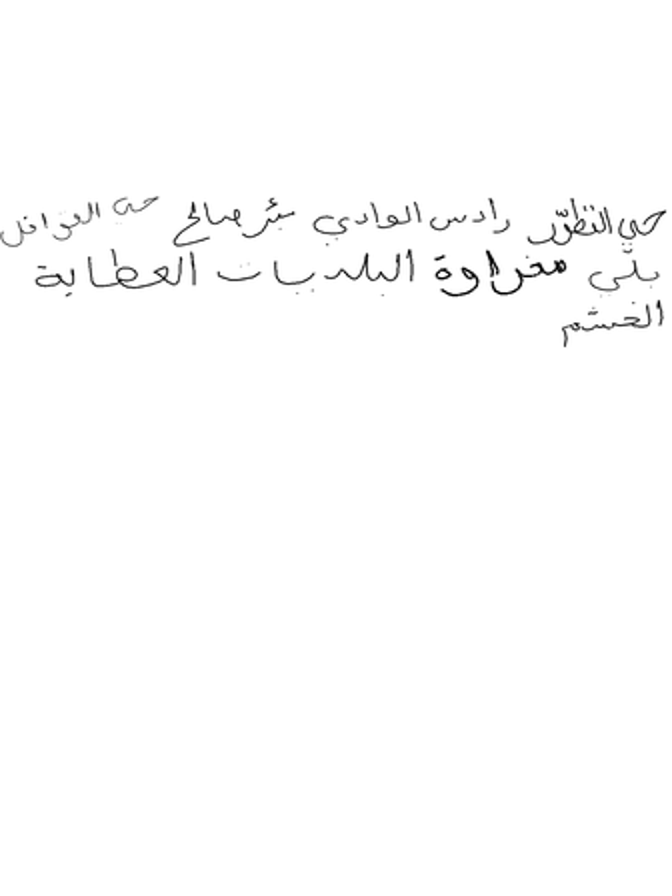 حي التطوّر رادس الوادي بئر صالح حي القوافل
بلّي مغراوة البلديات العطاية
الخشم